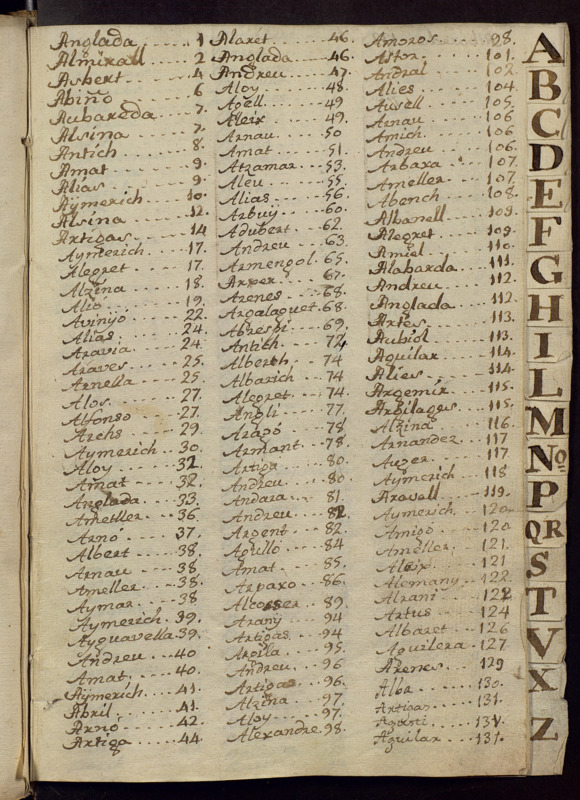 Anglada 1
Almirall 2
Asbert 4
Abiño 6
Aubareda 7.
Alsina 7.
Antich 8.
Amat 9.
Alias 9.
Aymerich 10
Alsina 12.
Artigas 14
Aymerich 17.
Alegret 17.
Alzina 18.
Alió 19.
Avinyó 22.
Alias 24.
Aravia 24.
Araves 25.
Arnella 25.
Alos 27.
Alfonso 27.
Archs 29.
Aymerich 30.
Aloy 32
Amat 32.
Anglada 33.
Ametller 36
Arno 37.
Albert 38.
Arnau 38
Ameller 38.
Aymar 38
Aymerich 39.
Ayguavella 39.
Andreu 40
Amat 40.
Aymerich 41.
Abril 41.
Arnó 42.
Artiga 44
Alaret 46.
Anglada 46.
Andreu 47.
Aloy 48.
Apell 49
Aleix 49.
Arnau 50
Amat 51.
Atzamar 53.
Aleu 55.
Alias 56.
Arbuy 60.
Adubert 62.
Andreu 63.
Armengol 65.
Arxer 67.
Arenes 68.
Argalaguet 68.
Abrespi 69.
Antich 72
Alberch 74
Albarich 74
Alegret 74.
Angli 77.
Aragó 78
Armant 78.
Artiga 80.
Andreu 80.
Andara 81.
Andreu 82
Argent 82.
Agullo 84
Amat 85.
Arparo 86.
Alcover 89.
Arañy 94
Artigas 94
Argila 95.
Andreu 96
Artigas 96.
Alzina 97.
Aloy 97.
Alexandre 98.
Amoros 98.
Astor 101.
Andral 102
Alies 104.
Ausell 105.
Arnau 106
Amich 106
Andreu 106.
Arbaxa 107.
Ameller 107.
Abench 108.
Albanell 109.
Alegret 109.
Amiel 110.
Alabarda 111.
Andreu 112.
Anglada 112.
Artés 113.
Aubiol 113.
Aguilar 114.
Alies 114.
Argemir 115.
Argilages 115.
Alzina 116.
Arnandez 117
Auger 117.
Aymerich 118
Aravall 119.
Aymerich 120
Amigó 120
Ameller 121.
Aleix 121
Alemany 122
Alrani 122
Artus 124
Albaret 126
Aguilera 127
Arenes 129
Alba 130.
Artigas 131.
Agusti 131.
Aguilar 131.
A
B
C
D
E
F
G
H
I
L
M
No
P
QR
S
T
V
X
Z